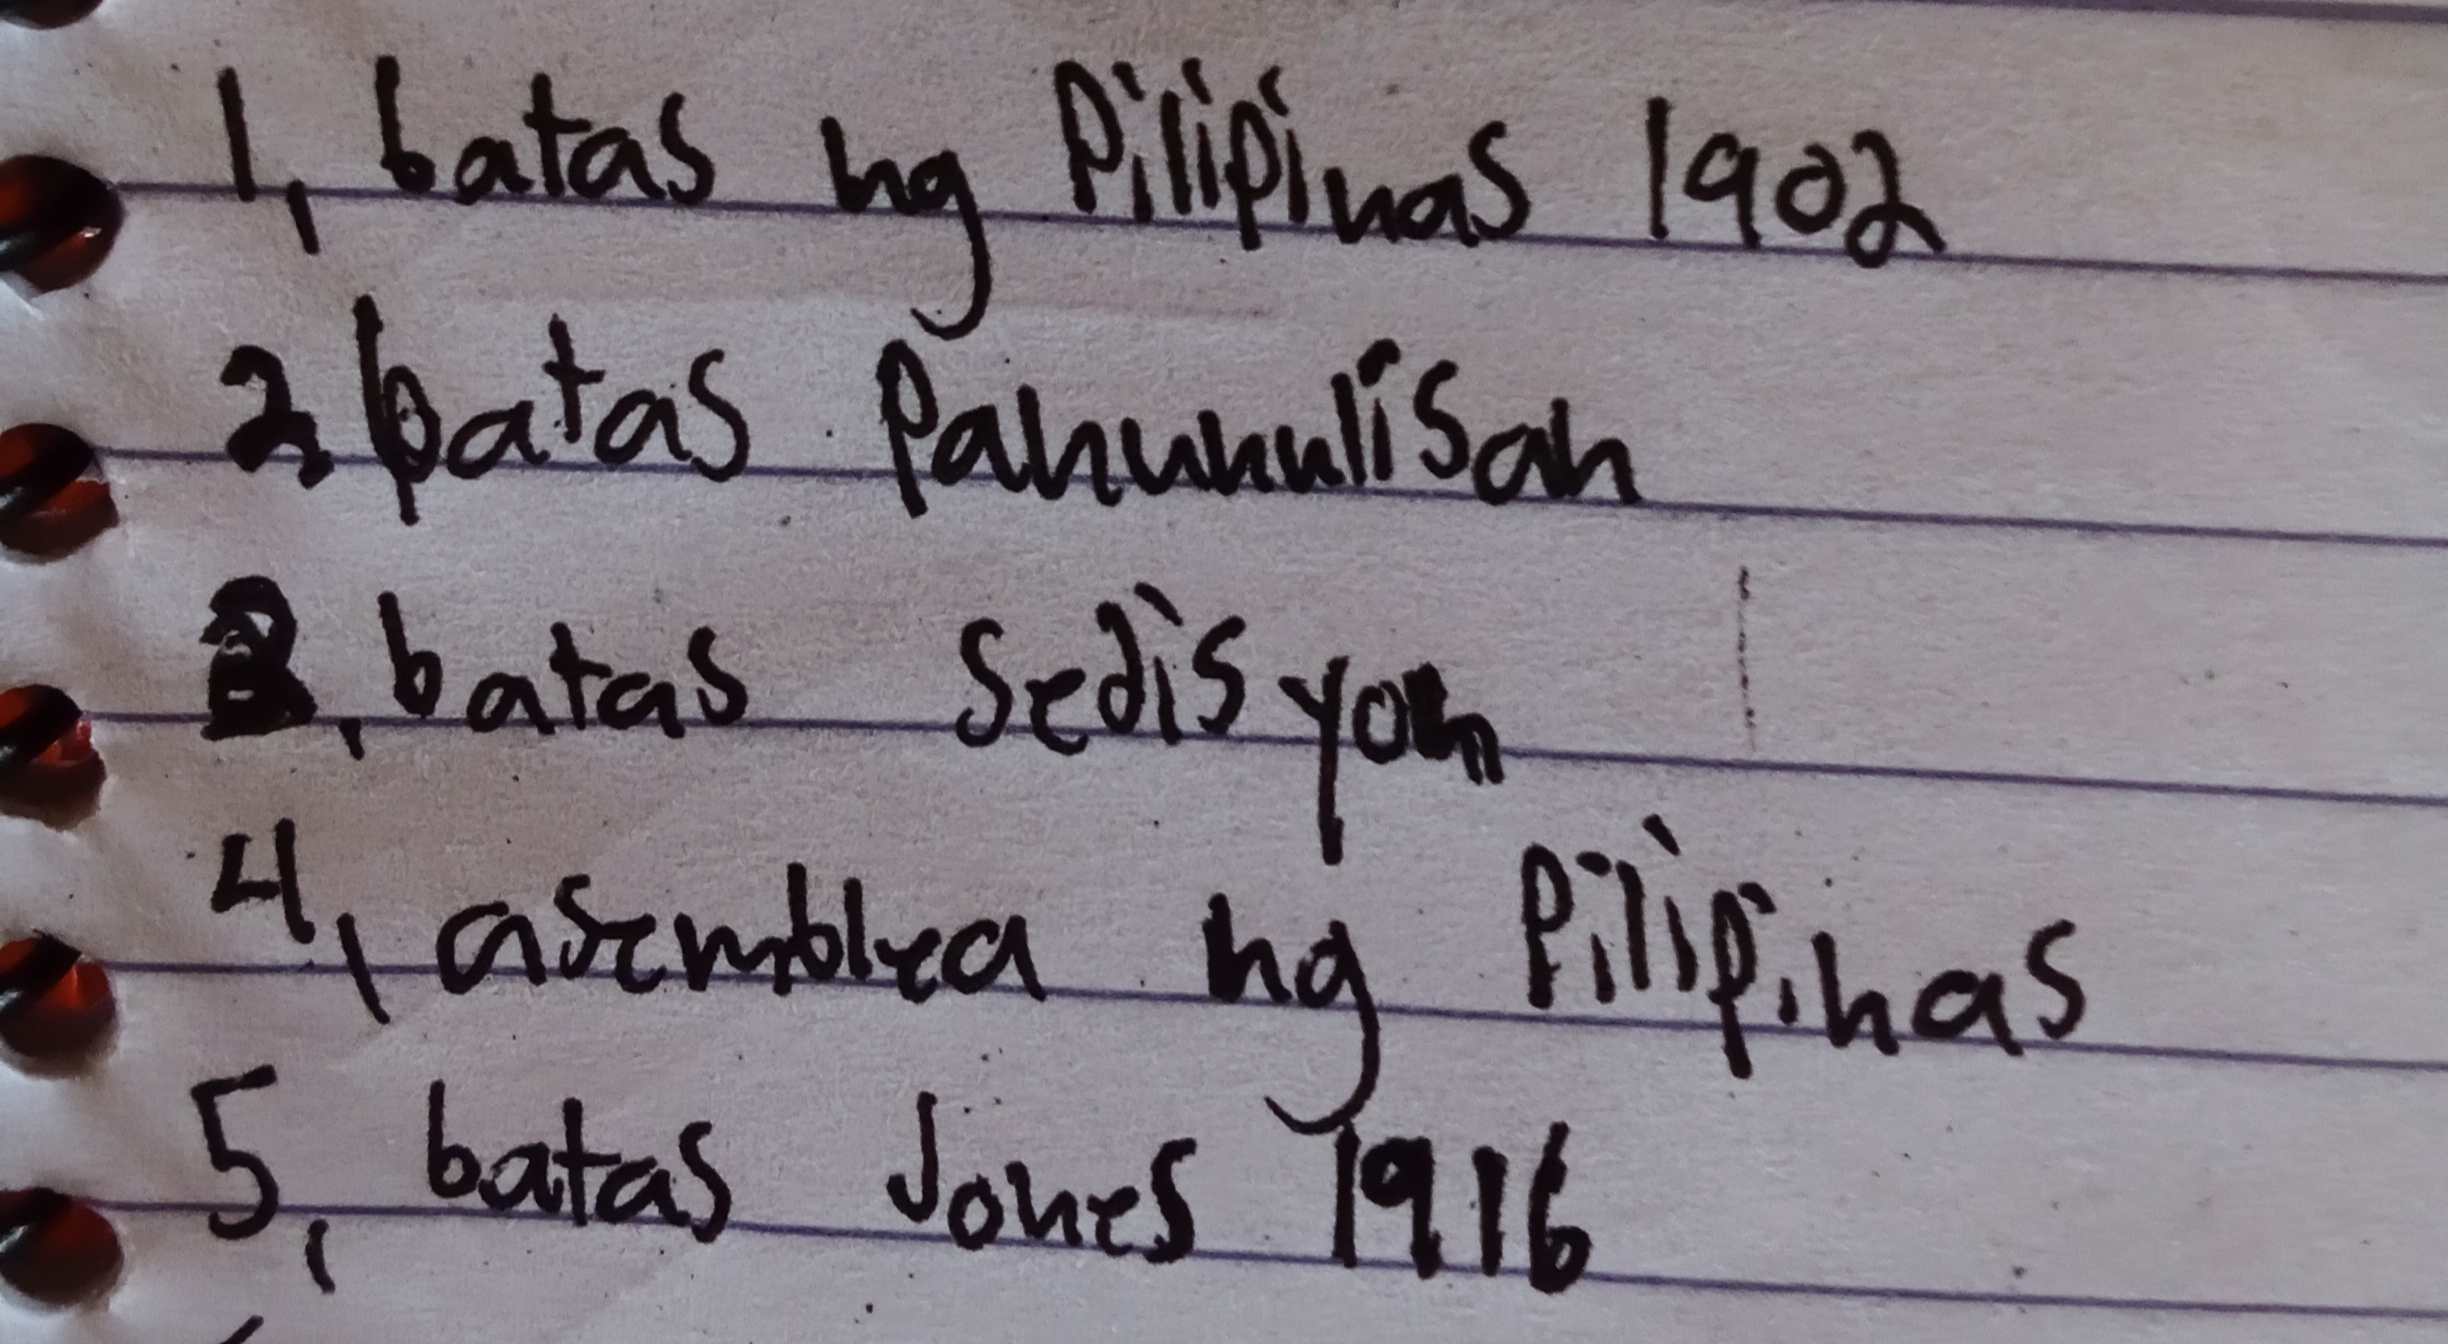 1, batas ng Pilipinas 1902
2 batas Panunulisan
3, batas sedisyon
4, asemblea ng Pilipinas
5, batas Jones 1916